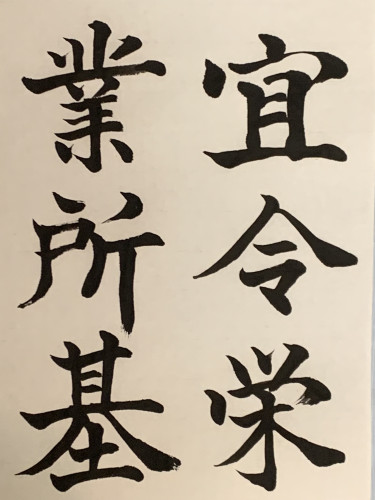 宜令栄
業所基